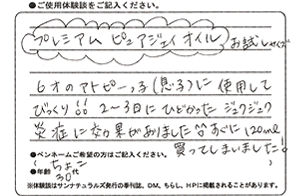 ●ご使用体験談をご記入ください。
プレミアム ピュアジェイ オイル お試しサイズ
6才のアトピーっ子(息子)に使用して
びっくり!! 2〜3日にひどかったジュクジュク
炎症に効果がありました!! すぐに120ml
買ってしまいました!
●ペンネームご希望の方はご記入ください。
( ちょこ
●年齢 30代
※体験談はサンナチュラルズ発行の季刊誌、DM、ちらし、HPに掲載されることがあります。